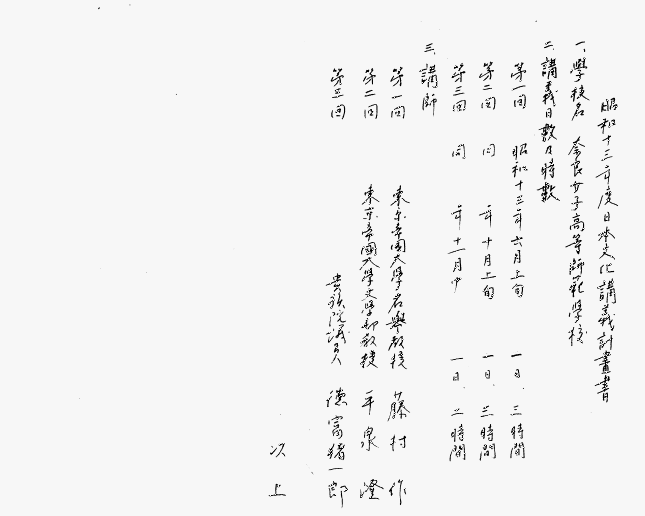 昭和十三年度日本文化講義計畫書
一、學校名 奈良女子高等師範學校
二、講義日數及時數
第一回 昭和十三年六月上旬 一日 三時間
第二回 同 年十月上旬 一日 三時間
第三回 同 年十一月中 一日 二時間
三、講師
第一回 東京帝國大學名譽教授 藤村 作
第二回 東京帝國大學文學部教授 平泉 澄
第三回 貴族院議員 徳富猪一郎
以上